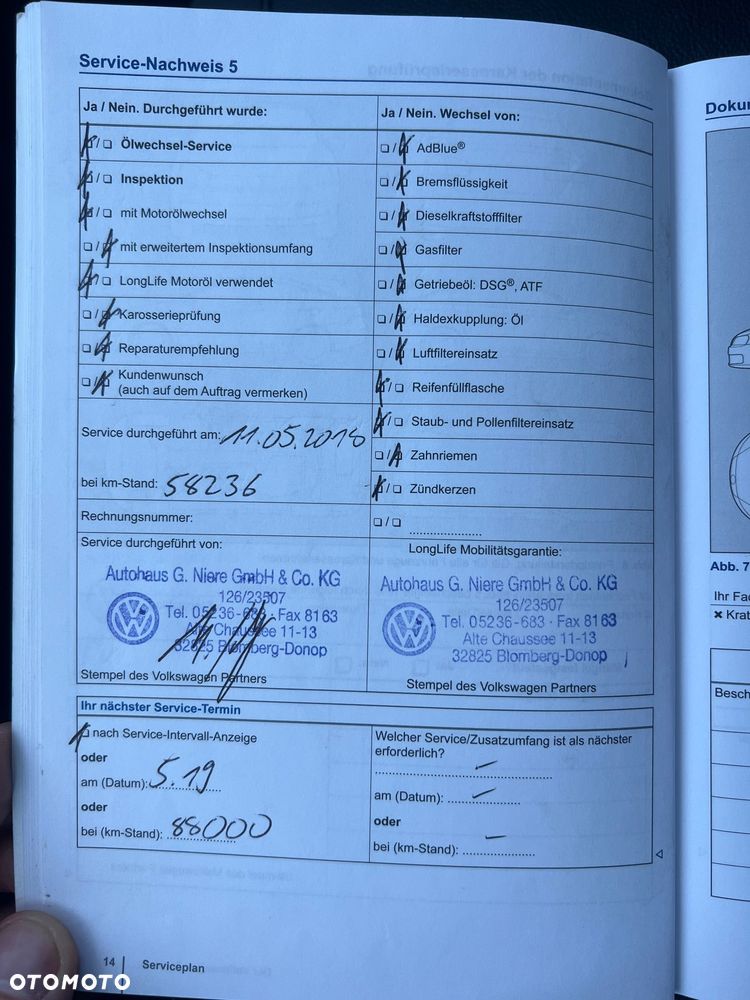 Service-Nachweis 5
Ja / Nein. Durchgeführt wurde:
❏/❏ Ölwechsel-Service
❏/❏ Inspektion
❏/❏ mit Motorölwechsel
❏/❏ mit erweitertem Inspektionsumfang
❏/❏ LongLife Motoröl verwendet
❏/❏ Karosserieprüfung
❏/❏ Reparaturempfehlung
❏/❏ Kundenwunsch
(auch auf dem Auftrag vermerken)
Service durchgeführt am: 11.05.2018
bei km-Stand: 58236
Rechnungsnummer:
Service durchgeführt von:
Autohaus G. Niere GmbH & Co. KG
126/23507
Tel. 05236-683 · Fax 8163
Alte Chaussee 11-13
32825 Blomberg-Donop
Stempel des Volkswagen Partners
Ja / Nein. Wechsel von:
❏/❏ AdBlue®
❏/❏ Bremsflüssigkeit
❏/❏ Dieselkraftstofffilter
❏/❏ Gasfilter
❏/❏ Getriebeöl: DSG®, ATF
❏/❏ Haldexkupplung: Öl
❏/❏ Luftfiltereinsatz
❏/❏ Reifenfüllflasche
❏/❏ Staub- und Pollenfiltereinsatz
❏/❏ Zahnriemen
❏/❏ Zündkerzen
❏/❏
LongLife Mobilitätsgarantie:
Autohaus G. Niere GmbH & Co. KG
126/23507
Tel. 05236-683 · Fax 8163
Alte Chaussee 11-13
32825 Blomberg-Donop
Stempel des Volkswagen Partners
Ihr nächster Service-Termin
❏ nach Service-Intervall-Anzeige
oder
am (Datum): 5.19
oder
bei (km-Stand): 88000
Welcher Service/Zusatzumfang ist als nächster
erforderlich? –
am (Datum): –
oder
bei (km-Stand): –
14 Serviceplan
Abb. 7
OTOMOTO